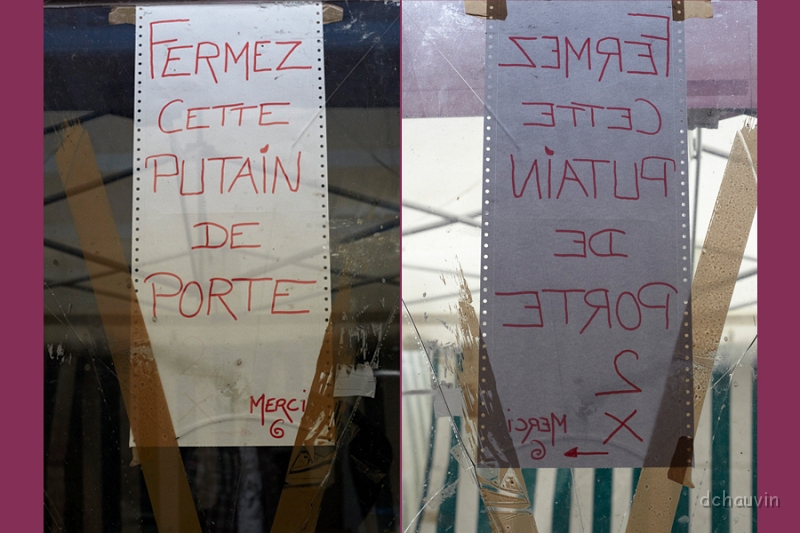 FERMEZ
CETTE
PUTAIN
DE
PORTE
MERCI
FERMEZ
CETTE
PUTAIN
DE
PORTE
2
X
MERCI
dchauvin